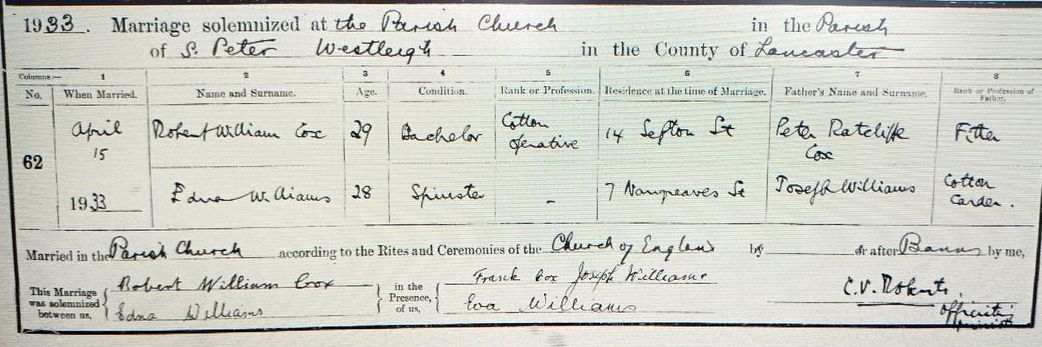 1933. Marriage solemnized at the Parish Church in the Parish
of S. Peter Westleigh in the County of Lancaster
Columns:— 1 2 3 4 5 6 7 8
No. When Married. Name and Surname. Age. Condition. Rank or Profession. Residence at the time of Marriage. Father's Name and Surname. Rank or Profession of Father.
62 April 15 Robert William Cox 29 Bachelor Cotton operative 14 Sefton St Peter Ratcliffe Cox Fitter
1933 Edna Williams 28 Spinster - 7 Nangreaves St Joseph Williams Cotton Carder.
Married in the Parish Church according to the Rites and Ceremonies of the Church of England by or after Banns by me,
This Marriage was solemnized between us, Robert William Cox in the Presence, of us, Frank Cox Joseph Williams C.V. Roberts.
Edna Williams Eva Williams Officiating Minister